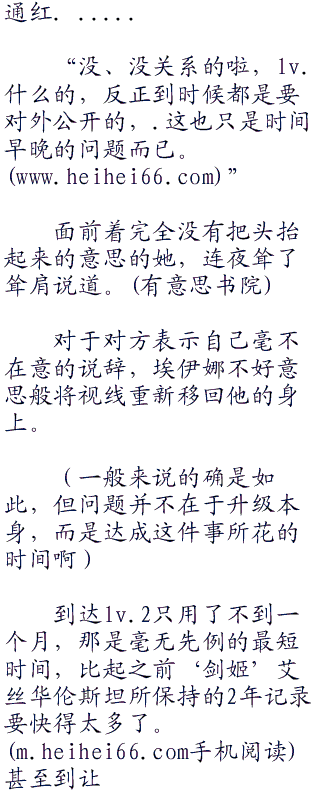 通红. .....
“没、没关系的啦，lv.
什么的，反正到时候都是要
对外公开的，.这也只是时间
早晚的问题而已。
(www.heihei66.com)”
面前着完全没有把头抬
起来的意思的她，连夜耸了
耸肩说道。(有意思书院)
对于对方表示自己毫不
在意的说辞，埃伊娜不好意
思般将视线重新移回他的身
上。
（一般来说的确是如
此，但问题并不在于升级本
身，而是达成这件事所花的
时间啊）
到达lv.2只用了不到一
个月，那是毫无先例的最短
时间，比起之前‘剑姬’艾
丝华伦斯坦所保持的2年记录
要快得太多了。
(m.heihei66.com手机阅读)
甚至到让